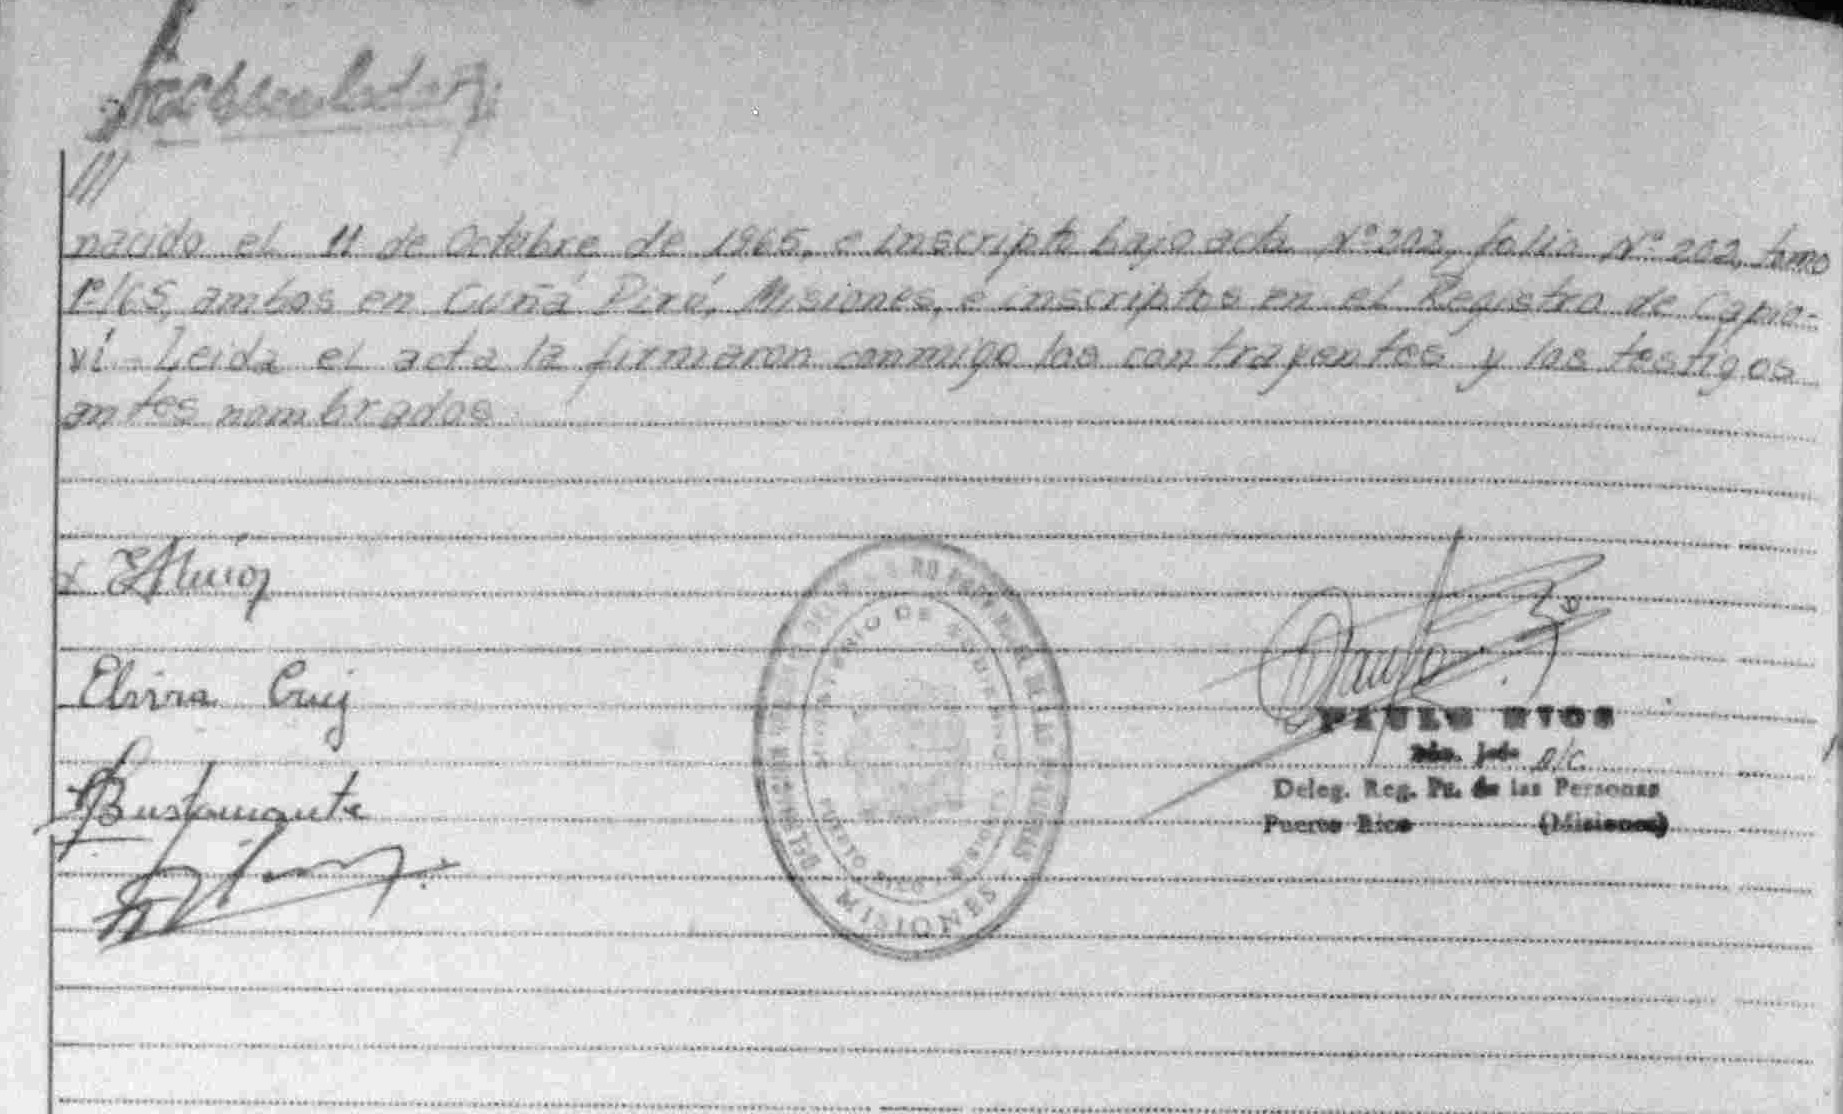 ///
nacido el 11 de Octubre de 1965, e inscripto bajo acta Nº 202, folio Nº 202, tomo
1º/65, ambos en Cuñá Pirú, Misiones, e inscriptos en el Registro de Capio-
ví - Leida el acta la firmaron conmigo los contrayentes y los testigos
antes nombrados
Elvira Cruz
Bustamante
MINISTERIO DE GOBIERNO
PUERTO RICO - MISIONES
MISIONES
PAULO RIOS
Jefe a/c
Deleg. Reg. Pr. de las Personas
Puerto Rico (Misiones)